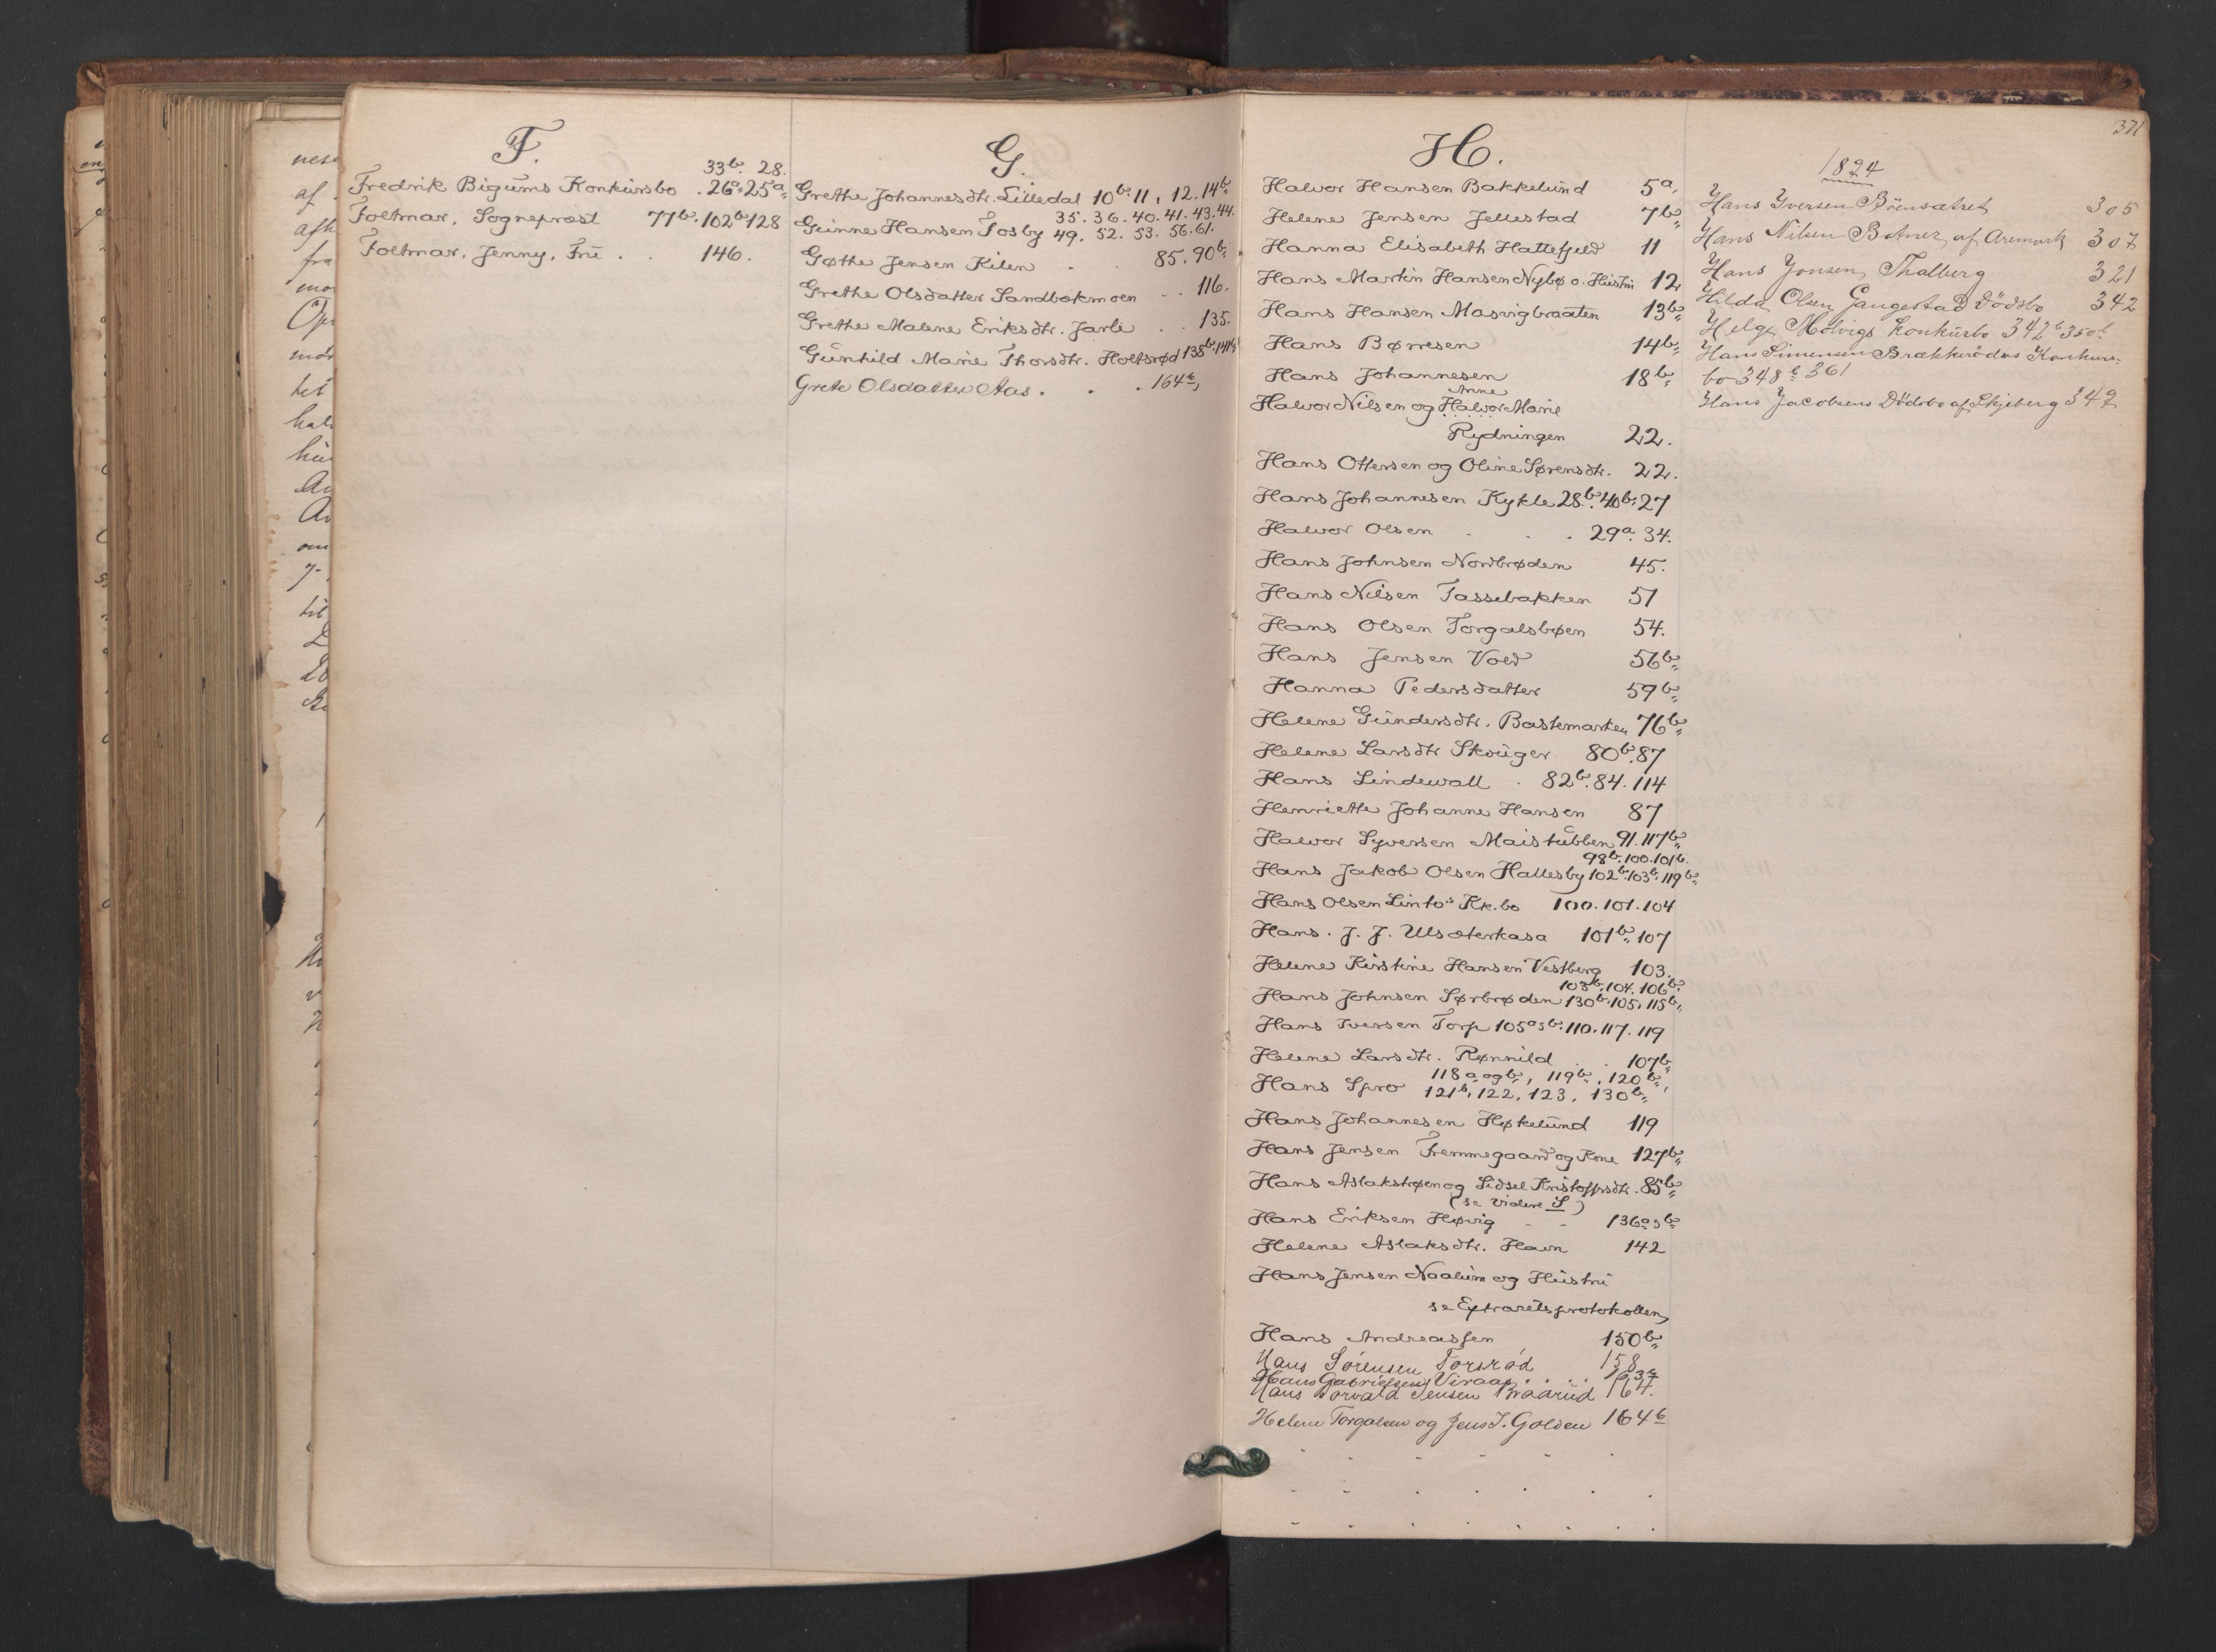 F.
33b. 28.
Fredrik Bigums Konkursbo . 26a. 25a.
Foltmar, Sogneprest 77b. 102b. 128
Foltmar, Jenny, Fru . . 146.
G.
Grethe Johannesdtr. Lilledal 10b. 11, 12. 14b.
35. 36. 40. 41. 43. 44.
Gunne Hansen Fosby 49. 52. 53. 56. 61.
Gøthe Jensen Kilen . 85. 90b.
Grethe Olsdatter Sandbækmoen . . 116.
Grethe Malene Eriksdtr. Jarli . . 135.
Gunhild Marie Thorsdtr. Holtsrød 138b. 141b
Grete Olsdatter Aas . . . 164b,
H.
Halvor Hansen Bakkelund 5a.
Helene Jensen Jellestad 7b.
Hanna Elisabeth Hattefjeld 11
Hans Martin Hansen Nybø o. Hustru 12
Hans Hansen Masvigbraaten 13b.
Hans Børresen 14b.
Hans Johannesen 18b.
Anne
Halvor Nilsen og Halvor Marie
Rydningen 22.
Hans Ottersen og Oline Sørensdtr. 22.
Hans Johannesen Kykle 28b. 40b. 27
Halvor Olsen . . . 29a. 34.
Hans Johnsen Nordbrøden 45.
Hans Nilsen Tassebakken 51
Hans Olsen Torgalsbøen 54.
Hans Jensen Vold 56b.
Hanna Pedersdatter 59b.
Helene Gundersdtr. Bastemarken 76b.
Helene Larsdtr Skouger 80b. 87
Hans Lindewall . 82b. 84. 114
Henriette Johanne Hansen 87
Halvor Syversen Maistubben 91. 117b.
98b. 100. 101b.
Hans Jakob Olsen Hallesby 102b. 103b. 119b.
Hans Olsen Linto's Kk.bo 100. 101. 104
Hans. J. J. Ulsæterkasa 101b. 107
Helene Kirstine Hansen Vestberg 103.
103b. 104. 106b.
Hans Johnsen Sørbrøden 130b. 105. 115b.
Hans Iversen Torp 105a&b. 110. 117. 119
Helene Larsdtr. Rønnild . . 107b.
118a og b, 119b, 120b,
Hans Spro 121b, 122, 123, 130b.
Hans Johannesen Høkelund 119
Hans Jensen Fremmegaard og Kone 127b.
Hans Aslakstrøen og Sidsel Kristoffersdtr. 85b.
(se videre S)
Hans Eriksen Høvig - - 136a&b
Helene Aslaksdtr. Haun 142
Hans Jensen Naalum og Hustru
se Extraretsprotokollen,
Hans Andreassen 150b.
Hans Sörensen Torsröd 158
Hans Gabrielsen Viraas . . . .
Hans Torvald Jensen Braarud 164.
Helene Torgalsen og Jens J. Golden 164b
371
1894
Hans Yversen Böensætret 305
Hans Nilsen Botner af Aremark 307
Hans Jonsen Thalberg 321
Hilda Olsen Gangestad Dödsbo 342
Helge Molvigs Konkursbo 342b 350b
Hans Simensen Brækkerödes Konkurs-
bo 348b 361
Hans Jacobsens Dödsbo af Skjeberg 349